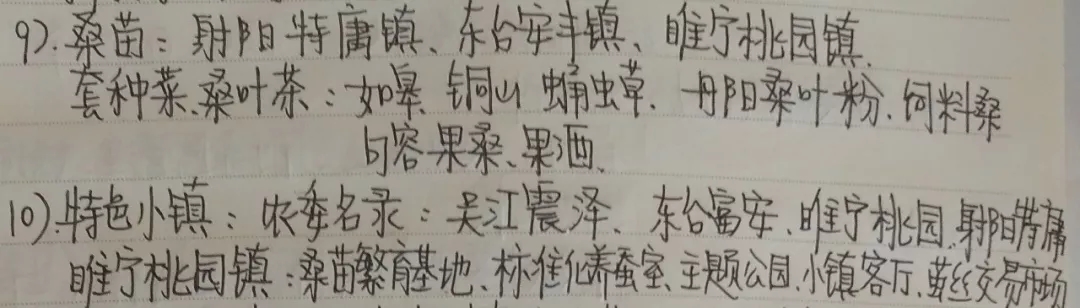 9). 桑苗：射阳特庸镇、东台安丰镇、睢宁桃园镇.
套种菜、桑叶茶：如皋 铜山 蛹虫草. 丹阳桑叶粉. 饲料桑
句容果桑、果酒、
10). 特色小镇：农委名录：吴江震泽、东台富安、睢宁桃园、射阳特庸
睢宁桃园镇：桑苗繁育基地、标准化养蚕室、主题公园、小镇客厅、茧丝交易市场